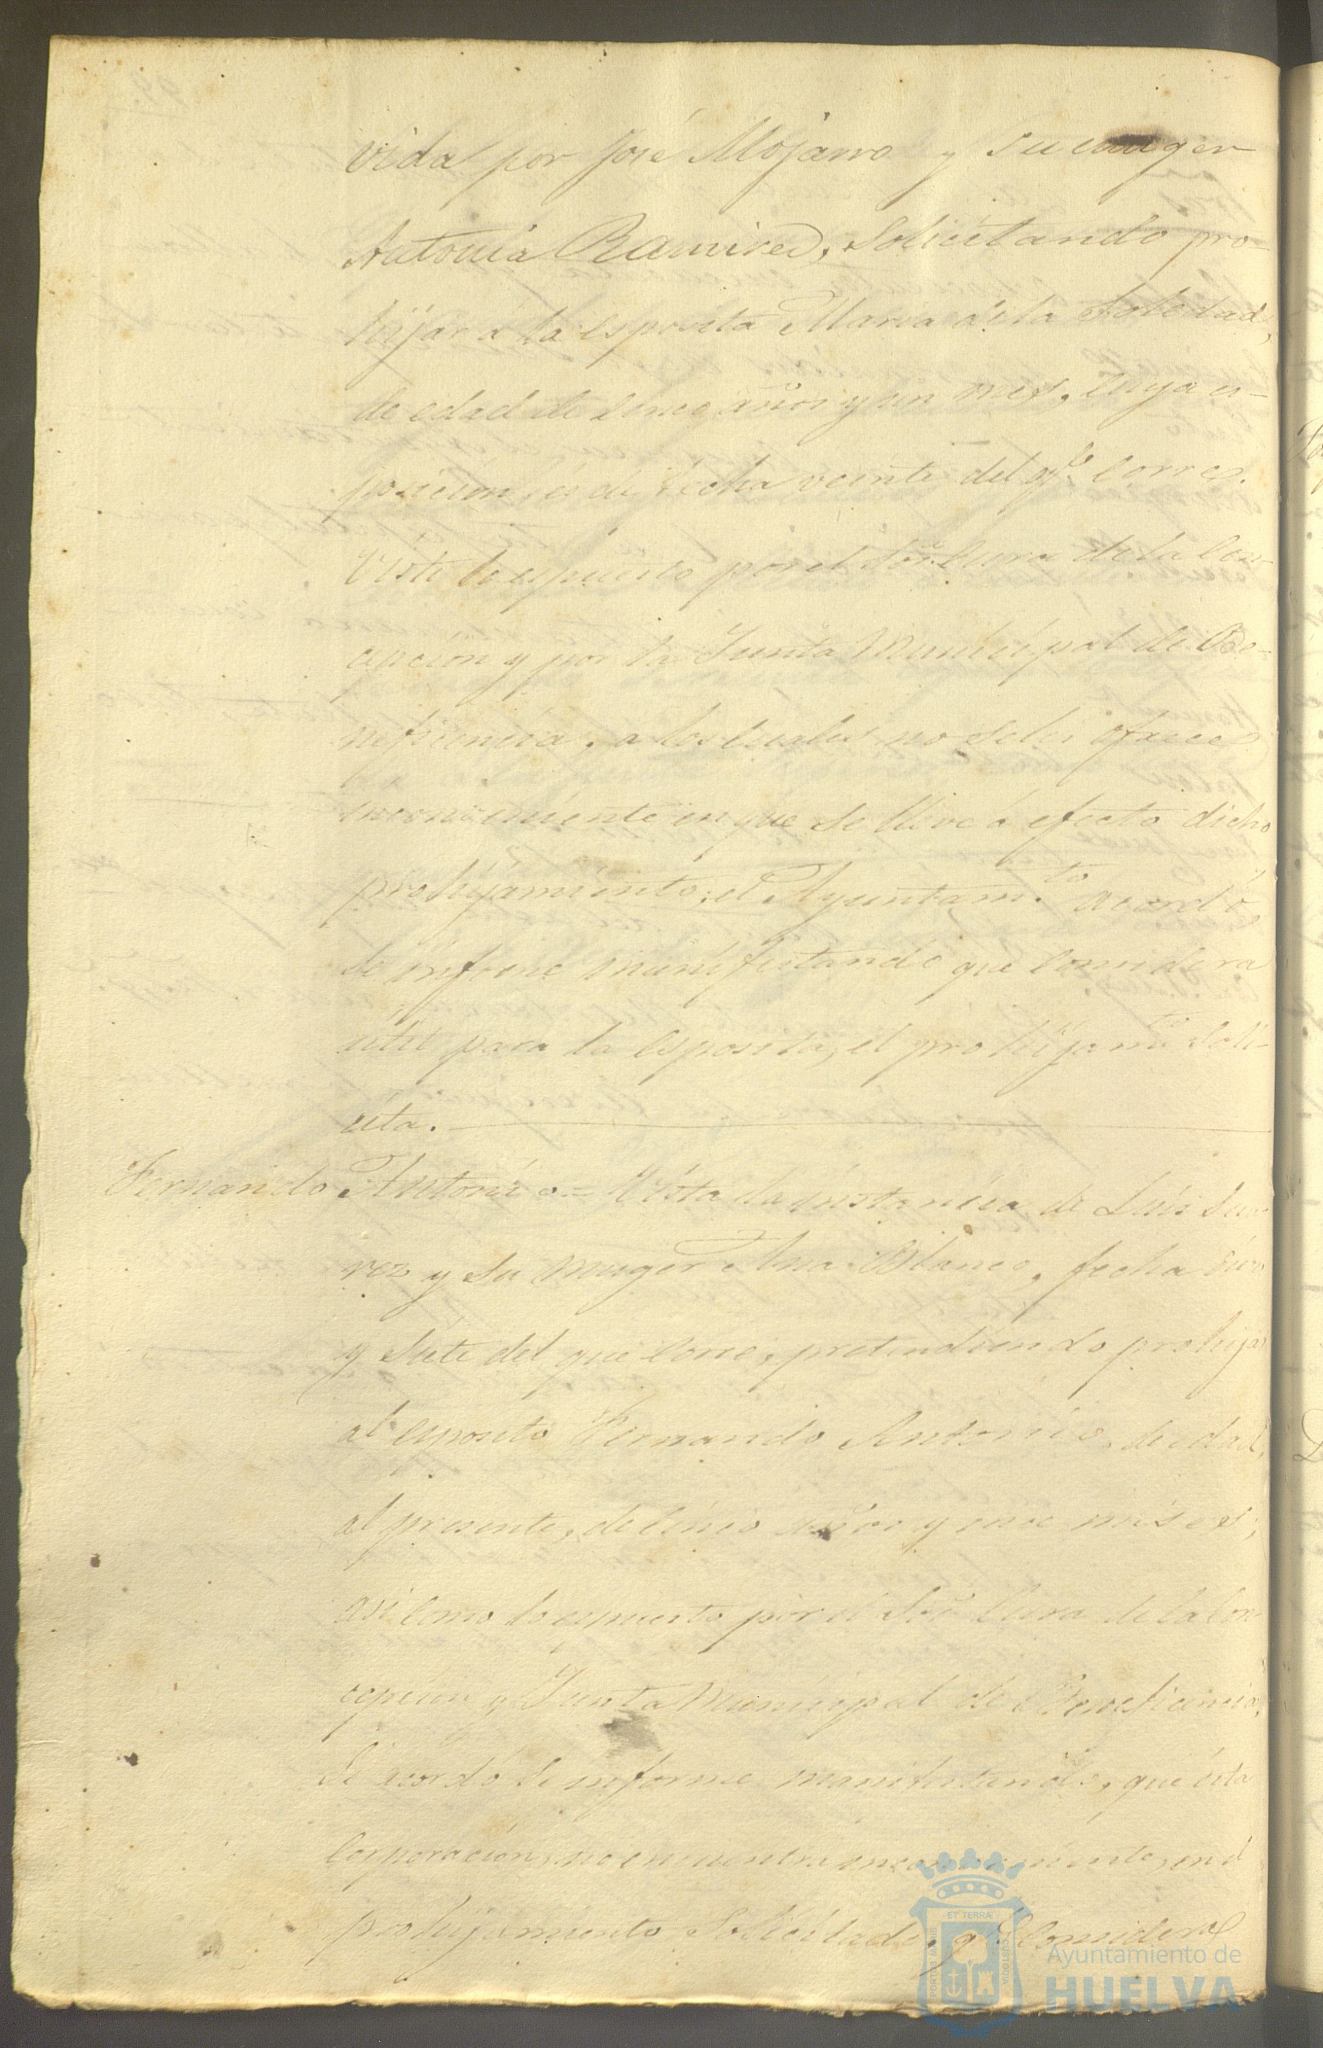 vida por José Mojarro y su muger
Antonia Ramires, solicitando pro-
hijar á la esposita Maria de la Soledad,
de edad de cinco años y un mes, cuya es-
posicion, es de fecha veinte del qe. corre.
Visto lo espuesto por el Sor. Cura de la Con-
cepcion y por la Junta Municipal de Be-
neficencia, a los cuales no se les ofrece
inconveniente en que se lleve á efecto dicho
prohijamiento; el Ayuntam.to acordó,
se informe manifestando que considera
util para la esposita, el prohijamto. soli-
cita.
Fernando Antonio = Vista la instancia de Luis Sua-
rez y su muger Ana Blanco, fecha diez
y siete del que corre, pretendiendo prohijar
al esposito Fernando Antonio, de edad,
al presente, de cinco años y once meses;
asi como lo espuesto por el Sor. Cura de la Con-
cepcion y Junta Municipal de Beneficencia,
se acordó se informe manifestando, que ésta
corporacion, no encuentra inconveniente, en el
prohijamiento solicitado, y considera
Ayuntamiento de
HUELVA